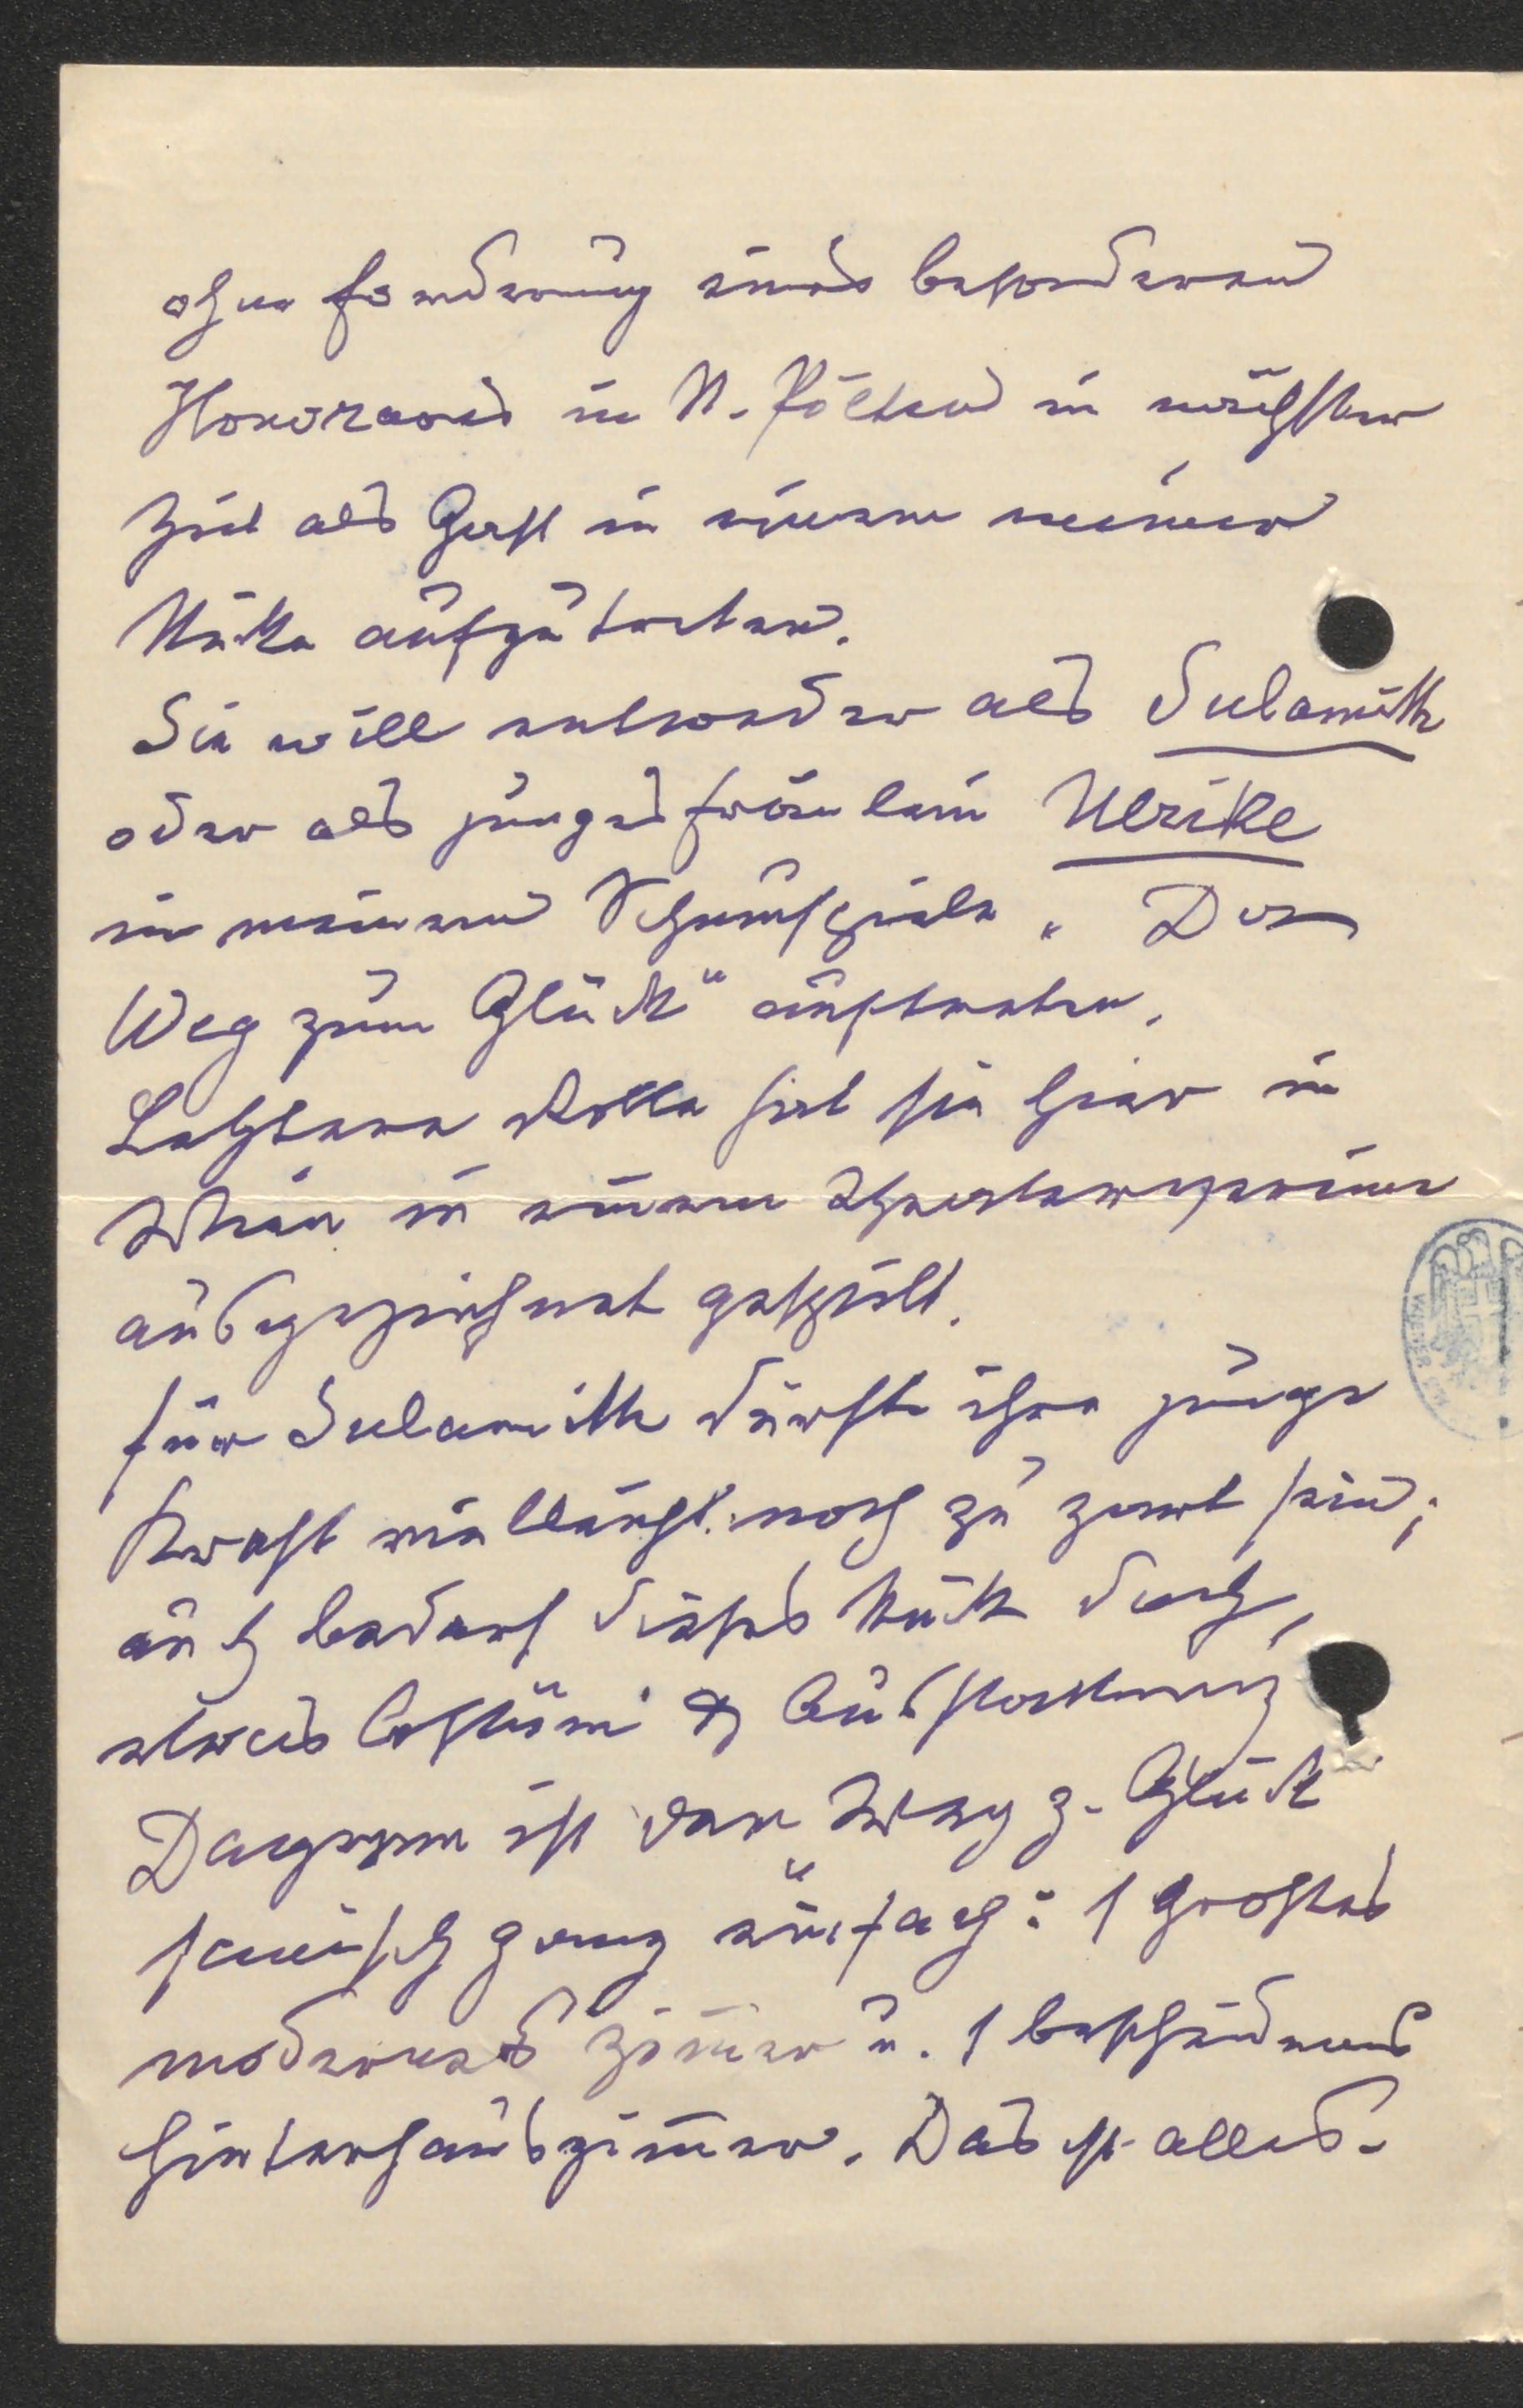 ohne Forderung eines besonderen
Honorares in St. Pölten in nächster
Zeit als Gast in einem meiner
Stücke aufzutreten.
Sie will entweder als Sulamith
oder als junges Fräulein Ulrike
in meinem Schauspiele „Der
Weg zum Glück“ auftreten.
Letztere Rolle hat sie hier in
Wien in einem Theaterverein
ausgezeichnet gespielt.
Für Sulamith dürfte ihre junge
Kraft vielleicht noch zu zart sein;
auch bedarf dieses Stück doch
etwas Costüm & Ausstattung
Dagegen ist der Weg z. Glück
scenisch ganz einfach: 1 großes
modernes Zimmer u. 1 bescheidenes
Hinterhauszimmer. Das ist alles.